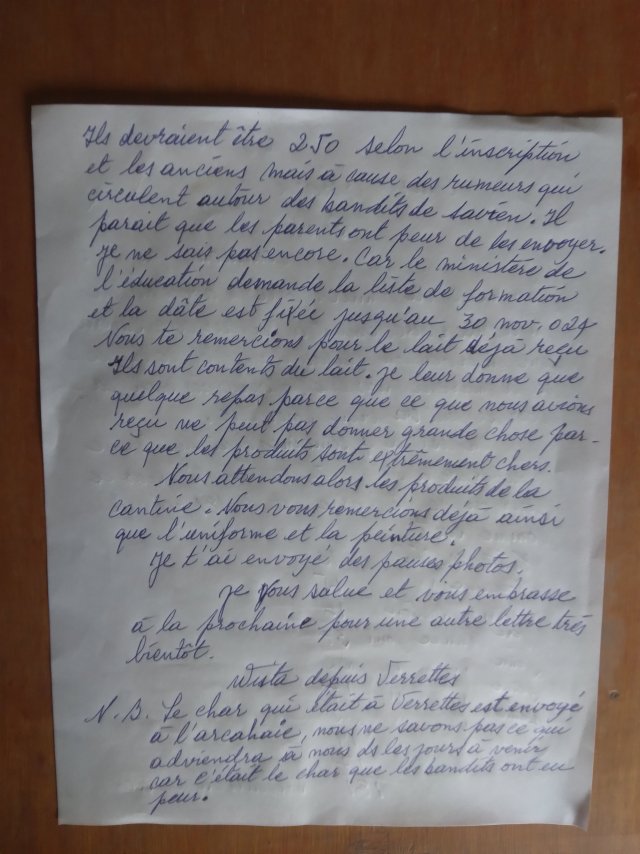 Ils devraient être 250 selon l'inscription
et les anciens mais à cause des rumeurs qui
circulent autour des bandits de savien. Il
parait que les parents ont peur de les envoyer.
Je ne sais pas encore. Car le ministère de
l'éducation demande la liste de formation
et la dâte est fixée jusqu'au 30 nov. 024
Nous te remercions pour le lait déjà reçu
Ils sont contents du lait. je leur donne que
quelque repas parce que ce que nous avions
reçu ne peut pas donner grande chose par-
ce que les produits sont extrêmement chers.
Nous attendons alors les produits de la
cantine. Nous vous remercions déjà ainsi
que l'uniforme et la peinture.
Je t'ai envoyé des pauses photos.
je vous salue et vous embrasse
à la prochaine pour une autre lettre très
bientôt.
Wista depuis Verrettes
N.B. Le char qui était à Verrettes est envoyé
à l'arcahaie, nous ne savons pas ce qui
adviendra à nous ds les jours à venir
car c'était le char que les bandits ont eu
peur.